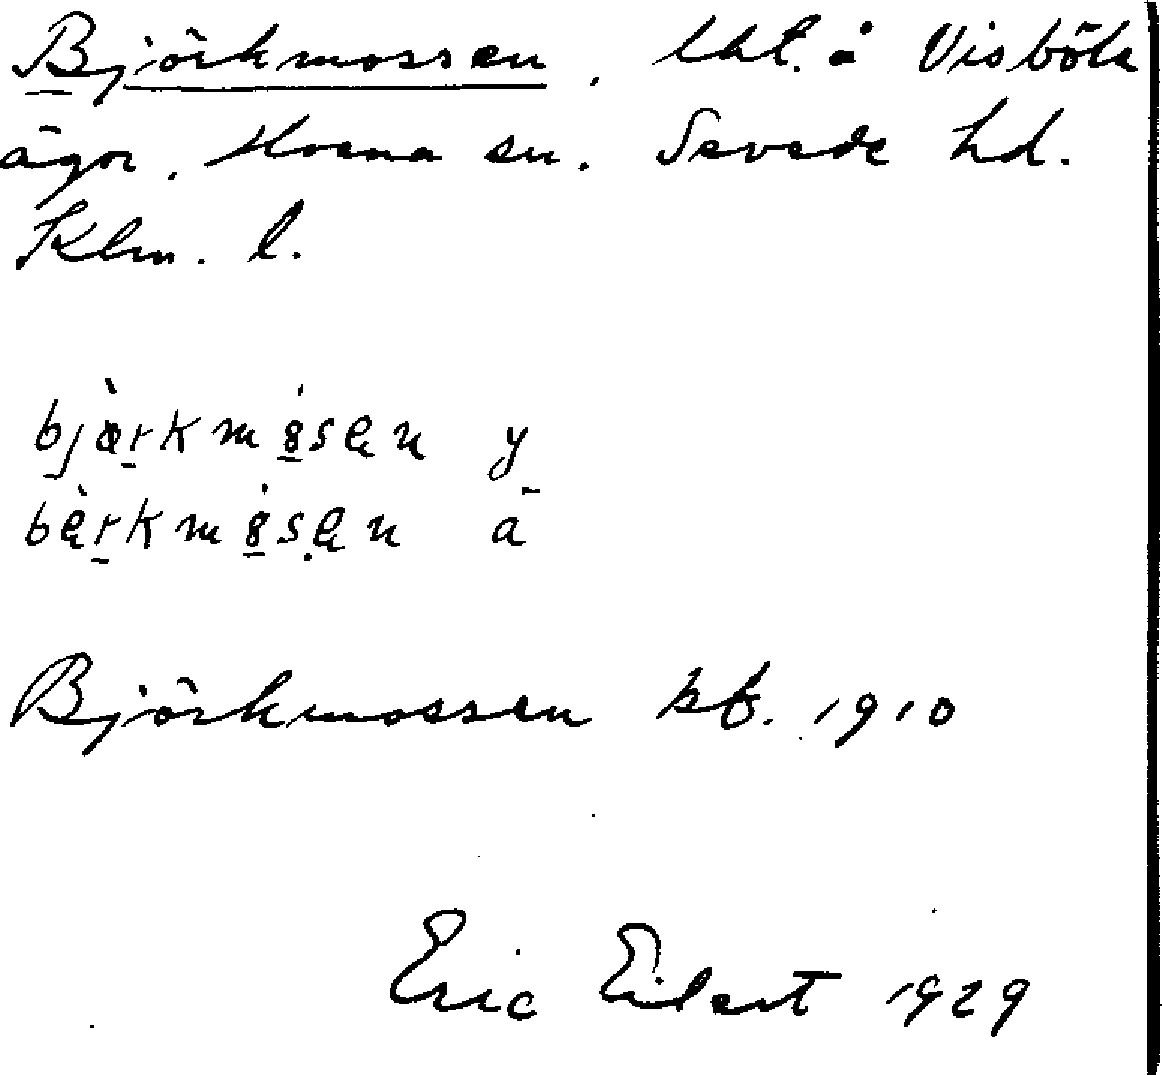 Björkmossen, lht. å Visböle
ägor, Morna sn. Sevede hd.
Klm. l.
bjärkmåsen y
bärkmåsen ä
Björkmossen kb. 1910
Eric Eilert 1929